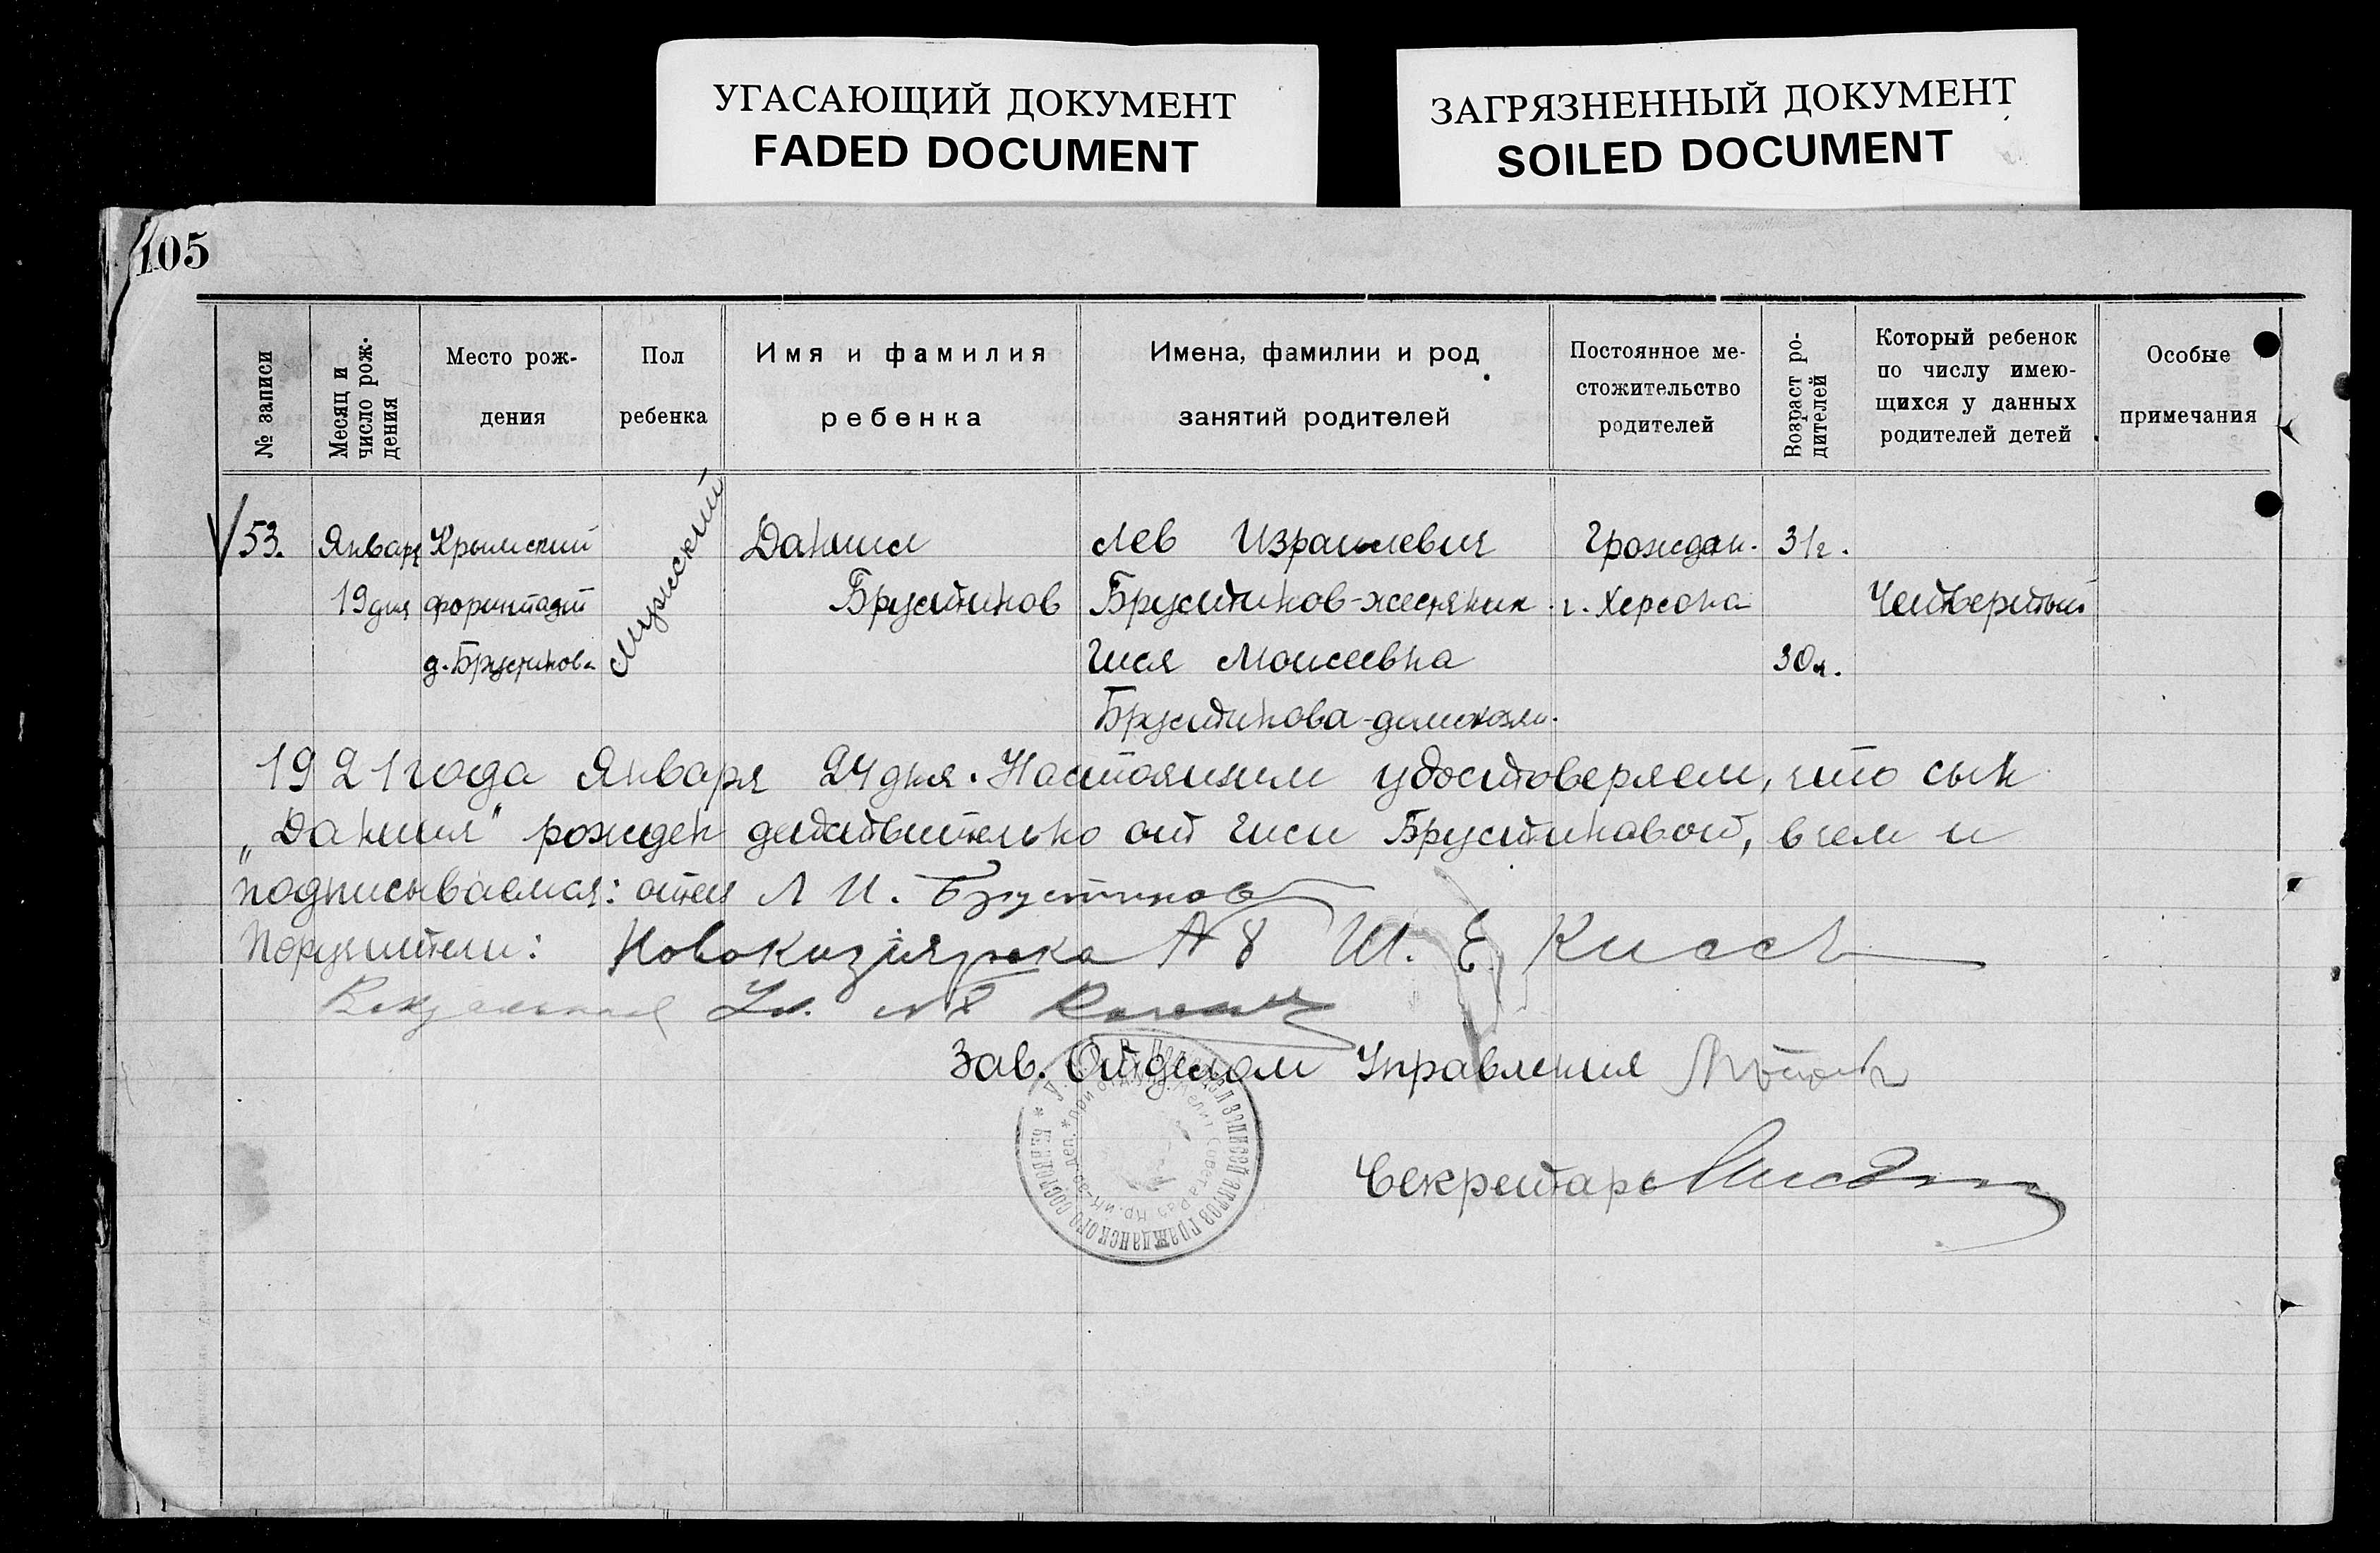 УГАСАЮЩИЙ ДОКУМЕНТ
FADED DOCUMENT
ЗАГРЯЗНЕННЫЙ ДОКУМЕНТ
SOILED DOCUMENT
105
№ записи
Месяц и
число рож-
дения
Место рож-
дения
Пол
ребенка
Имя и фамилия
ребенка
Имена, фамилии и род
занятий родителей
Постоянное ме-
стожительство
родителей
Возраст ро-
дителей
Который ребенок
по числу имею-
щихся у данных
родителей детей
Особые
примечания
53.
Января
19 дня
Крымский
форштадт
д. Брустинова
Мужской
Даниил
Брустинов
Лев Израилевич
Брустинов-жестяник
Гися Моисеевна
Брустинова-домохоз.
Граждан.
г. Херсона
31 г.
30 л.
Четвертый
1921 года Января 24 дня. Настоящим удостоверяем, что сын
„Даниил" рожден действительно от Гиси Брустиновой, в чем и
подписываемся: отец Л И. Брустинов
Поручители: № 8 Ш. Е. Кисель
Зав. Отделом Управления
Секретарь
записей актов гражданского состояния